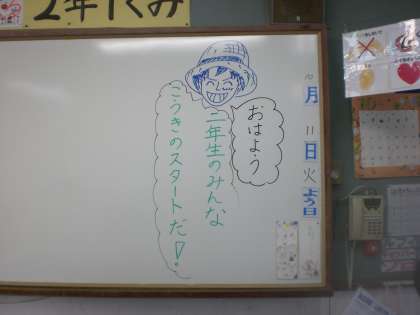 2年1くみ
10月11日火よう日
おはよう
二年生のみんな
こうきのスタートだ!